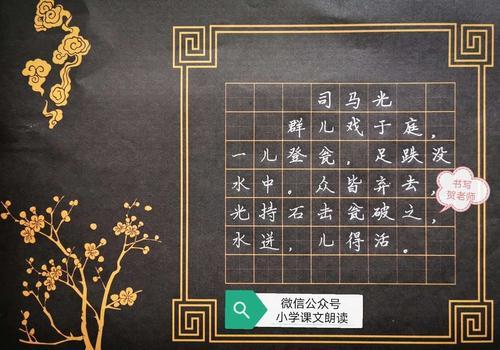 司马光
群儿戏于庭，
一儿登瓮，足跌没
水中。众皆弃去，
光持石击瓮破之，
水迸，儿得活。
书写
贺老师
微信公众号
小学课文朗读